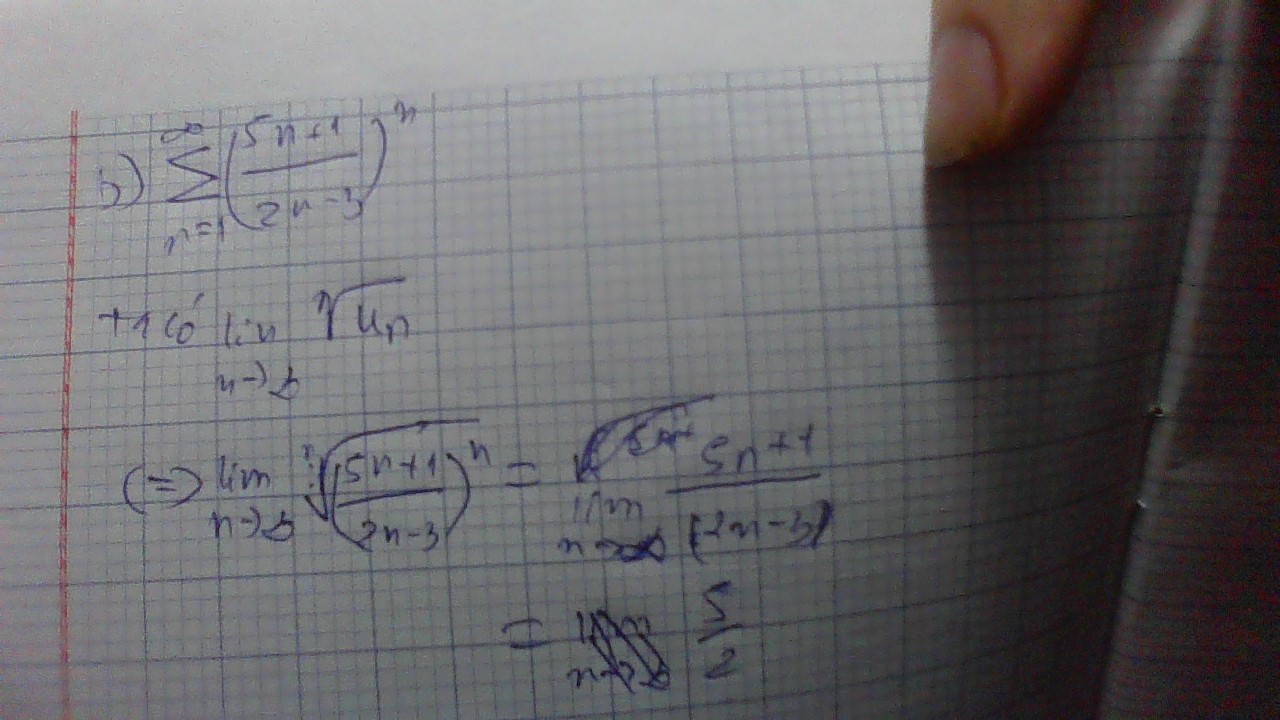 b) ∑_{n=1}^{∞} ((5n+1)/(2n-3))^n
+1 Có lim_{n→∞} ⁿ√(uₙ)
(=) lim_{n→∞} ⁿ√(((5n+1)/(2n-3))^n) = lim_{n→∞} (5n+1)/(2n-3)
= 5/2